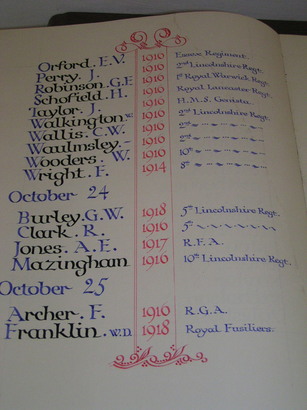 Orford. E.V. 1916 Essex Regiment.
Perry. J. 1916 2nd Lincolnshire Regt.
Robinson. G.E 1916 1st Royal Warwick. Regt.
Schofield. H. 1916 Royal Lancaster Regt.
Taylor. J. 1916 H.M.S. Genista.
Walkington. W. 1916 2nd Lincolnshire Regt.
Wallis. C.W. 1916 2nd " " "
Waulmsley. - 1916 2nd " " "
Wooders. W. 1916 10th " " "
Wright. F. 1914 8th " " "
October 24
Burley. G.W. 1918 5th Lincolnshire Regt.
Clark. R. 1916 5th
Jones. A.E. 1917 R.F.A.
Mazingham 1916 10th Lincolnshire Regt.
October 25
Archer. F. 1916 R.G.A.
Franklin. W.D. 1918 Royal Fusiliers.